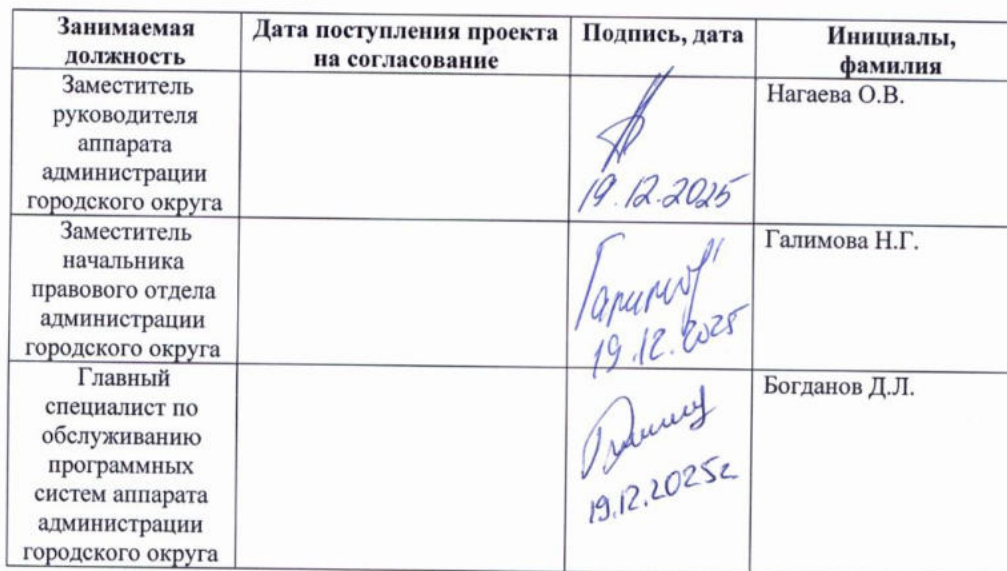 Занимаемая должность
Дата поступления проекта на согласование
Подпись, дата
Инициалы, фамилия
Заместитель
руководителя
аппарата
администрации
городского округа
19.12.2025
Нагаева О.В.
Заместитель
начальника
правового отдела
администрации
городского округа
19.12.2025
Галимова Н.Г.
Главный
специалист по
обслуживанию
программных
систем аппарата
администрации
городского округа
19.12.2025г
Богданов Д.Л.